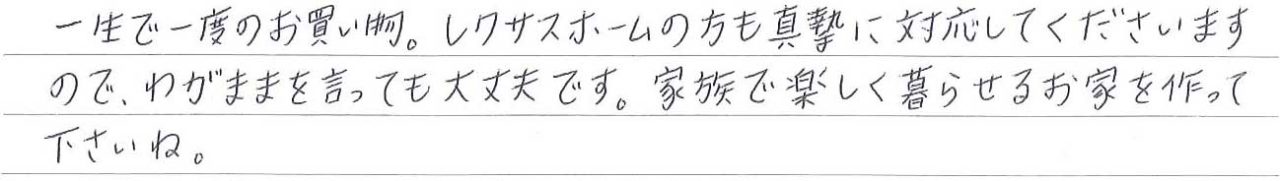 一生で一度のお買い物。レクサスホームの方も真摯に対応してくださいます
ので、わがままを言っても大丈夫です。家族で楽しく暮らせるお家を作って
下さいね。